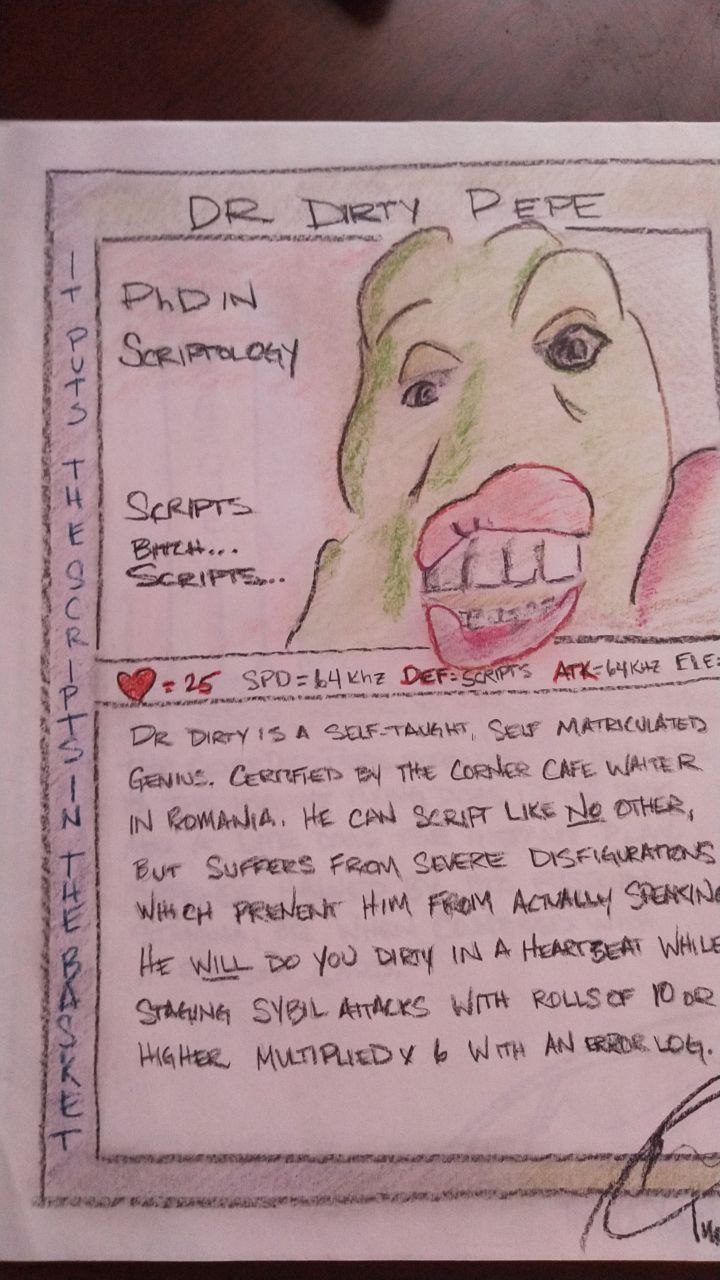 DR DIRTY PEPE
IT PUTS THE SCRIPTS IN THE BASKET
PhD IN
SCRIPTOLOGY
SCRIPTS
BITCH...
SCRIPTS...
= 25 SPD = 64 Khz DEF = SCRIPTS ATK = 64 KHZ ELE =
DR DIRTY IS A SELF-TAUGHT, SELF MATRICULATED
GENIUS. CERTIFIED BY THE CORNER CAFE WAITER
IN ROMANIA. HE CAN SCRIPT LIKE NO OTHER,
BUT SUFFERS FROM SEVERE DISFIGURATIONS
WHICH PREVENT HIM FROM ACTUALLY SPEAKING
HE WILL DO YOU DIRTY IN A HEARTBEAT WHILE
STAGING SYBIL ATTACKS WITH ROLLS OF 10 OR
HIGHER MULTIPLIED X 6 WITH AN ERROR LOG.